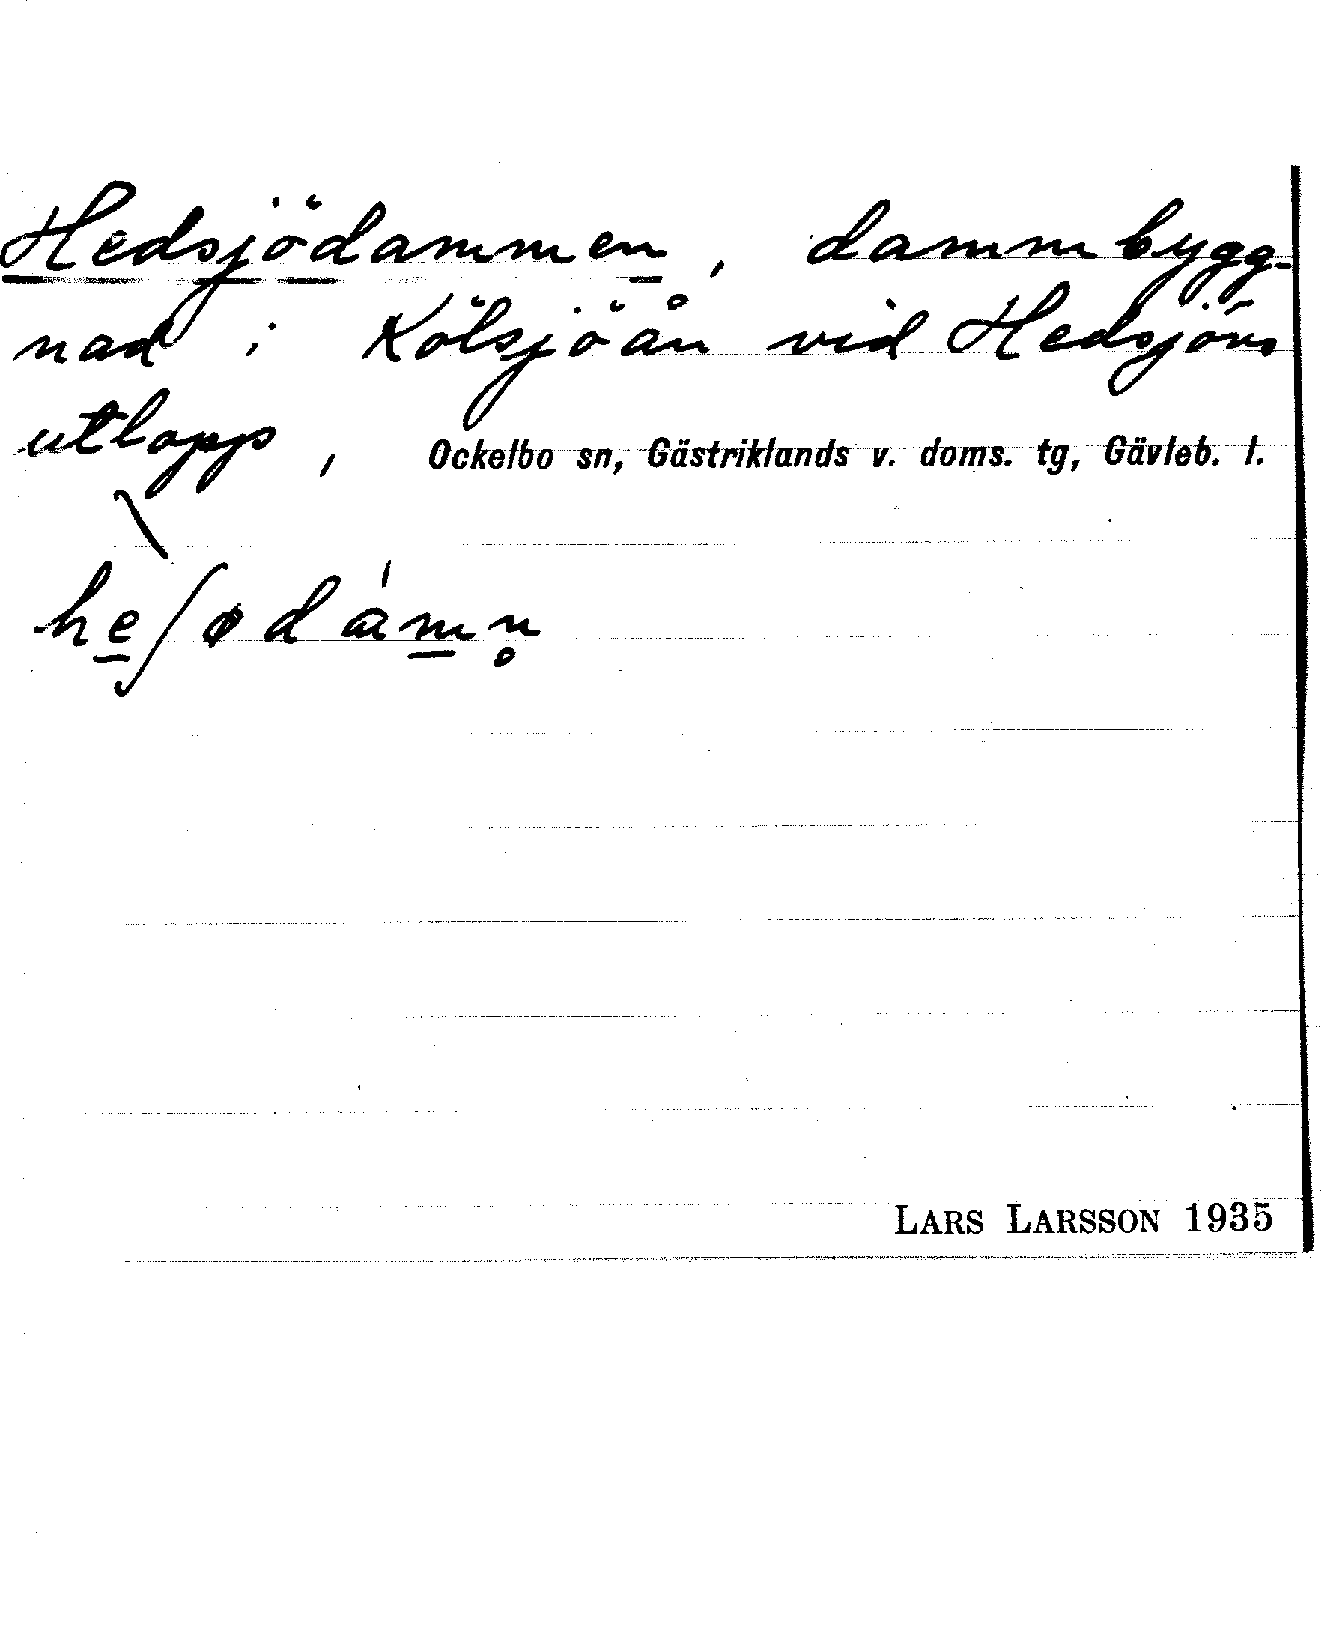 Hedsjödammen, dammbygg-
nad i Kölsjöån vid Hedsjöns
utlopp, Ockelbo sn, Gästriklands v. doms. tg, Gävleb. l.
he̱ʃød àm̱n̥
LARS LARSSON 1935